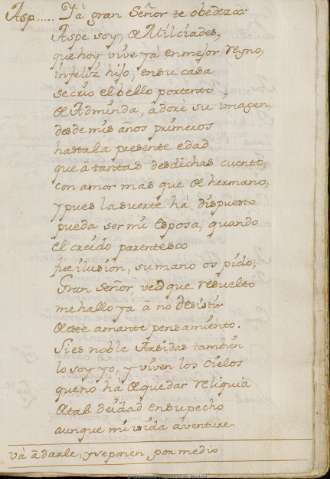 Asp..... Ya gran Señor te obedezco:
Aspe soy, de Milciades,
que hoy vive ya en mejor Reyno,
infeliz hijo; en su casa
se crio el bello portento
de Adminda, adoré su imagen,
desde mis años primeros
hasta la presente edad
que á tantas desdichas cuento,
con amor mas que de hermano,
y pues la suerte ha dispuesto
pueda ser mi Esposa, quando
el creido parentesco
fue ilusion, su mano os pido;
Gran Señor ved que resuelto
me hallo ya á no desistir
de este amante pensamiento.
Si es noble Arbidas tambien
lo soy yo, y viven los Cielos
que no ha de quedar reliquia
de tal deidad en su pecho
aunque mi vida aventure
vá á darle, y se ponen por medio